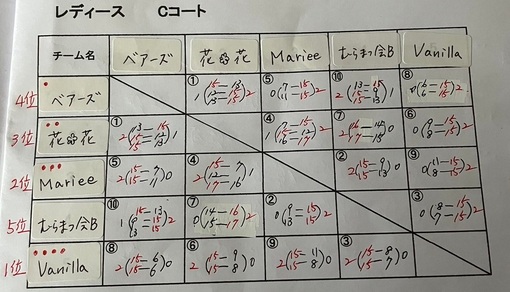 レディース Cコート
チーム名 ベアーズ 花花 Mariee むらまつ会B Vanilla
4位 ベアーズ ① 1 15-13 13-15 2 ⑤ 0 7-15 11-15 2 ⑩ 2 15-9 13 1 ⑧ 0 6-15 6-15 2
3位 花花 ① 2 13-15 15- 15- 1 ④ 1 7-15 15-12 2 ⑦ 2 0 ⑥ 0 9-15 8-15 2
2位 Mariee ⑤ 2 15-7 15-11 0 ④ 2 15-7 12- 17-16 1 ② 2 15-9 15-13 0 ⑨ 0 11-15 8-15 2
5位 むらまつ会B ⑩ 1 15-13 9-15 13-15 2 ⑦ 0 14-16 15-17 2 ② 0 9-15 13-15 2 ③ 0 8-15 7-15 2
1位 Vanilla ⑧ 2 15-6 15-6 0 ⑥ 2 15-9 15-8 0 ⑨ 2 15-11 15-8 0 ③ 2 15-8 15-7 0